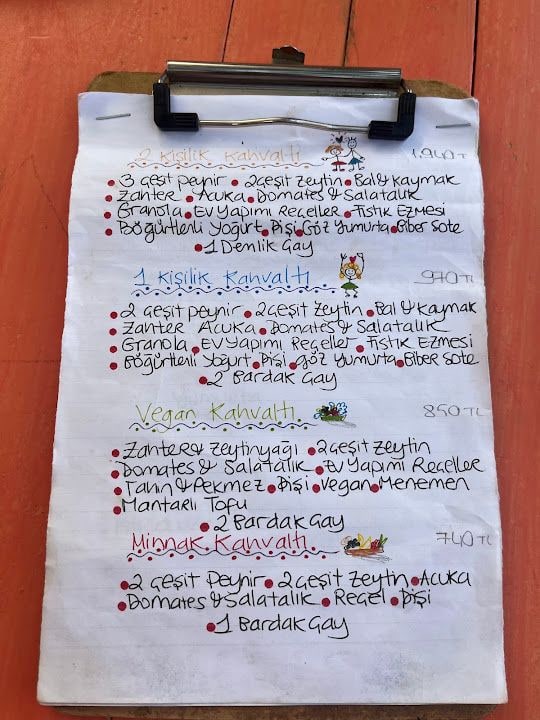 2 Kişilik Kahvaltı 1.940 TL
• 3 Çeşit Peynir • 2 Çeşit Zeytin • Bal & Kaymak
• Zahter • Acuka • Domates & Salatalık
• Granola • Ev Yapımı Reçeller • Fıstık Ezmesi
• Böğürtlenli Yoğurt • Pişi • Göz Yumurta • Biber Sote
• 1 Demlik Çay
1 Kişilik Kahvaltı 970 TL
• 2 Çeşit Peynir • 2 Çeşit Zeytin • Bal & Kaymak
• Zahter Acuka • Domates & Salatalık
• Granola • Ev Yapımı Reçeller • Fıstık Ezmesi
• Böğürtlenli Yoğurt • Pişi • Göz Yumurta • Biber Sote
• 2 Bardak Çay
Vegan Kahvaltı 850 TL
• Zahter & Zeytinyağı • 2 Çeşit Zeytin
• Domates & Salatalık • Ev Yapımı Reçeller
• Tahin & Pekmez • Pişi • Vegan Menemen
• Mantarlı Tofu
• 2 Bardak Çay
Minnak Kahvaltı 740 TL
• 2 Çeşit Peynir • 2 Çeşit Zeytin • Acuka
• Domates & Salatalık • Reçel • Pişi
• 1 Bardak Çay